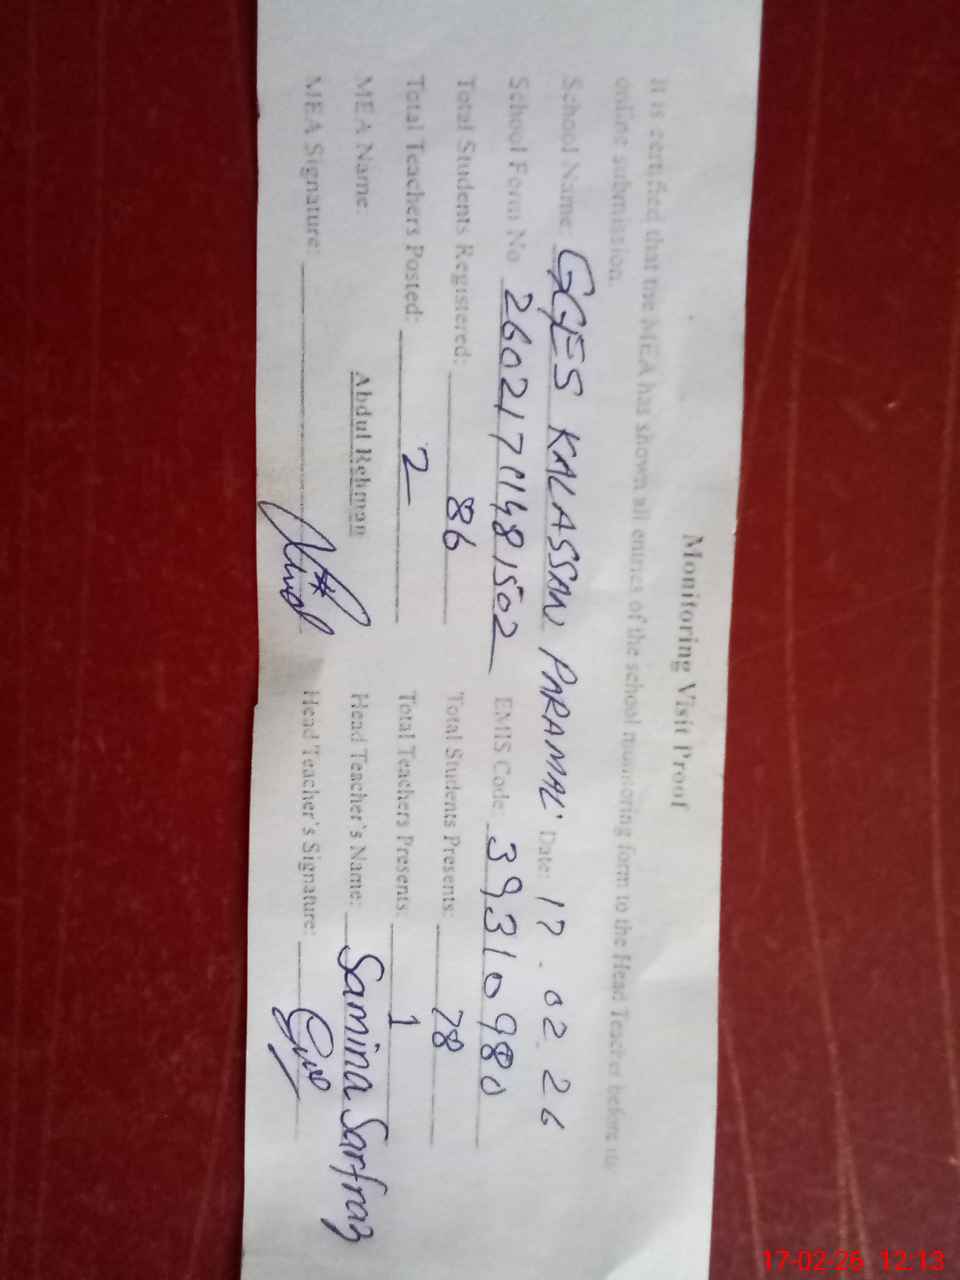 Monitoring Visit Proof
It is certified that the MEA has shown all entries of the school monitoring form to the Head Teacher before its
online submission.
School Name: GGES KALASSAN PARAMAL Date: 17.02.26
School Form No 26021711481502 EMIS Code: 39310980
Total Students Registered: 86 Total Students Presents: 78
Total Teachers Posted: 2 Total Teachers Presents: 1
MEA Name: Abdul Rehman Head Teacher's Name: Samina Sarfraz
MEA Signature: Head Teacher's Signature:
17-02-26 12:13